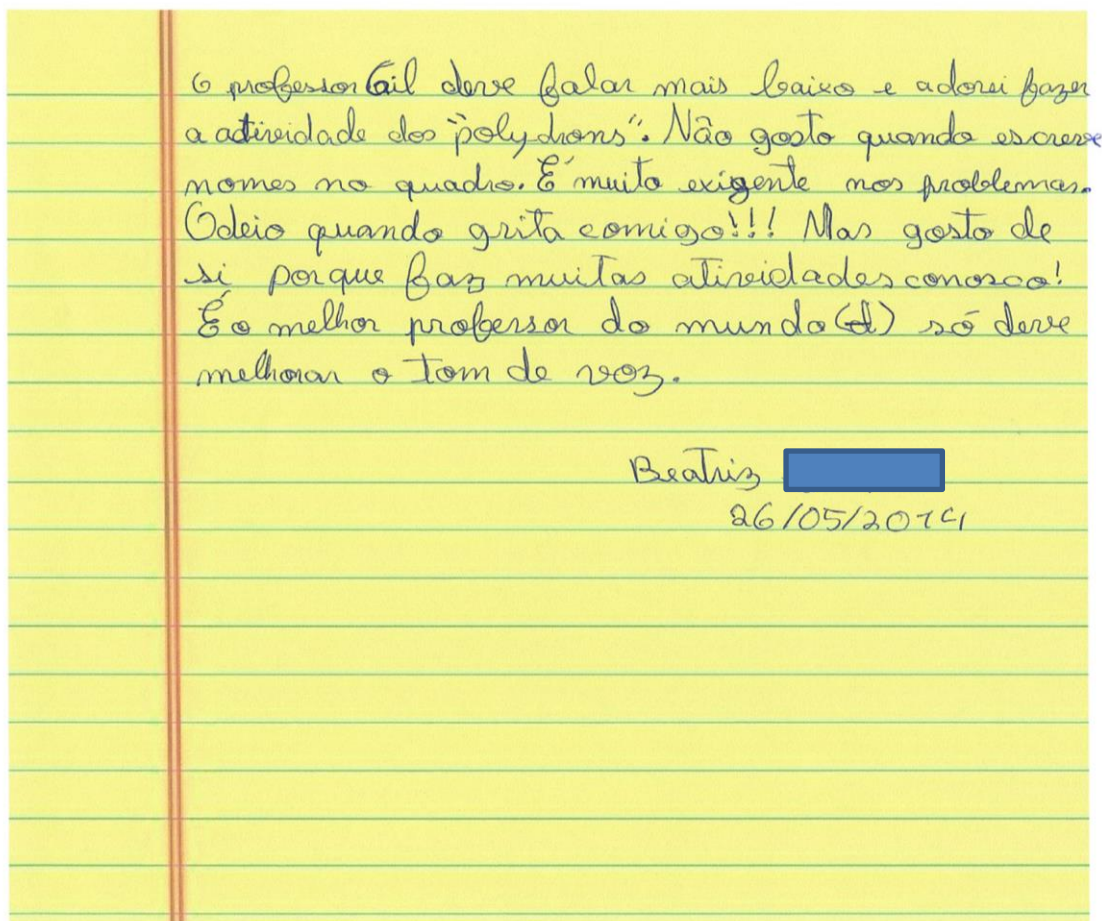 O professor Gil deve falar mais baixo e adorei fazer
a actividade dos "polydrons". Não gosto quando escreve
nomes no quadro. É muito exigente nos problemas.
Odeio quando grita comigo!!! Mas gosto de
si porque faz muitas atividades conosco!
É o melhor professor do mundo só deve
melhorar o tom de voz.
Beatriz
26/05/2014